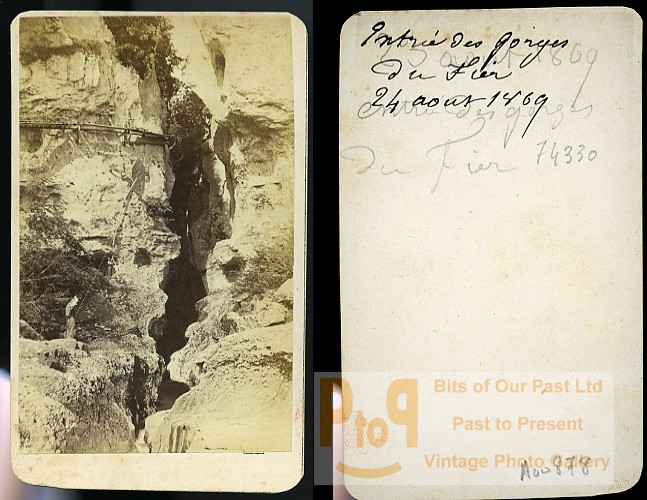 Entrée des gorges
du Fier
24 aout 1869
aout 1869
Entrée des gorges
du Fier 74330
Bits of Our Past Ltd
PtoP
Past to Present
Vintage Photo Gallery
878